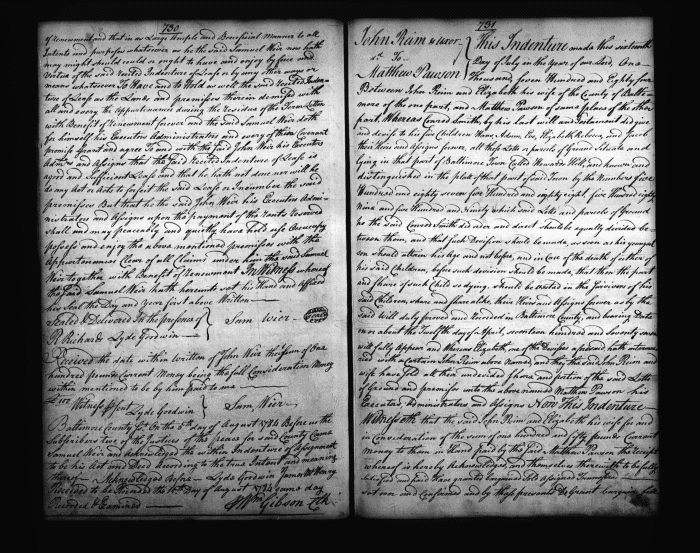 730
of Renewment and that in as Large Ample and Beneficial Manner to all
Intents and purposes whatsoever as he the said Samuel Weir now hath
may might should could or ought to have and enjoy by force and
Virtue of the said recited Indenture of Lease or by any other ways or
means whatsoever To Have and to Hold as well the said recited Inden
ture of Lease as the Lands and premises therein demised with
all and every the Appurtenances during the residue of the Term
with Benefit of Renewment forever and the said Samuel Weir doth
for himself his Executors Administrators and every of them Covenant
promise Grant and agree To and with the said John Weir his Executors
Adm'rs and Assigns that the said Recited Indenture of Lease is a
good and Sufficient Lease and that he hath not done nor will he
do any Act or Acts to forfeit the said Lease or Incumber the said
premises But that he the said John Weir his Executors Admi
nistrators and Assigns upon the payment of the rents reserved
shall and may peaceably and quietly have hold use Occupy
possess and enjoy the above mentioned premises with the
Appurtenances Clear of all Claims under him the said Samuel
Weir together with Benefit of Renewment In Witness whereof
the said Samuel Weir hath hereunto set his Hand and affixed
his Seal the Day and Year first above Written
Sealed & Delivered In the presence of } Sam Weir
R Richards Lyde Goodwin
Received the date within Written of John Weir the sum of One
hundred pounds Current Money being the full Consideration Money
within mentioned to be by him paid to me
Witness present Lyde Goodwin } Sam Weir
Baltimore County Sc. On the 5th day of August 1784 Before us the
Subscribers two of the Justices of the peace for said County Came
Samuel Weir and Acknowledged the within Indenture of Assignment
to be his Act and Deed According to the true Intent and meaning
thereof Acknowledged before Lyde Goodwin James McHenry
Received to be Recorded the 10th day of August 1784 same day
Recorded & Examined Wm Gibson Clk
731
John Reim & uxor
To
Matthew Pawson
This Indenture made this sixteenth
Day of July in the Year of our Lord, One
Thousand, seven Hundred and Eighty four
Between John Reim and Elizabeth his wife of the County of Balti
more of the one part, and Matthew Pawson of same place of the other
part Whereas Conrad Smith by his last will and Testament did give
and devise to his five Children Adam, Eve, Elizabeth, Rebecca, and Jacob
their Heirs and Assigns forever, all those Lots or parcels of Ground Situate and
lying in that part of Baltimore Town Called Howards Hill, and known and
distinguished in the plat of that part of said Town by the Numbers five
Hundred and eighty seven five Hundred and eighty eight five Hundred eighty
Nine and five Hundred and Ninety which said Lots and parcels of Ground
he the said Conrad Smith did order and direct should be equally divided be
tween them, and that such Division should be made, as soon as his youngest
son should attain his age and not before, and in Case of the death of either of
his said Children, before such division should be made, that then the part
and share of such Child so dying, should be vested in the survivors of his
said Children, share and share alike, their Heirs and Assigns forever as by the
said Will duly proved and recorded in Baltimore County, and bearing Date
on or about the Twelfth day of April, seventeen hundred and Seventy seven
will fully Appear and Whereas Elizabeth, one of the Devisees aforesaid hath interma
ried with a certain John Reim above Named, and they the said John Reim and
wife have sold all their undivided share and portion of the said Lotts
of Ground and premises unto the above named Matthew Pawson his
Executors, Administrators and Assigns Now This Indenture
Witnesseth that the said John Reim and Elizabeth his wife for and
in Consideration of the sum of one hundred and fifty pounds Current
money to them in Hand paid by the said Matthew Pawson the receipt
whereof is hereby Acknowledged, and themselves therewith to be fully
satisfied and paid have granted bargained sold assigned transferred
set over and confirmed and by these presents Do Grant bargain sell